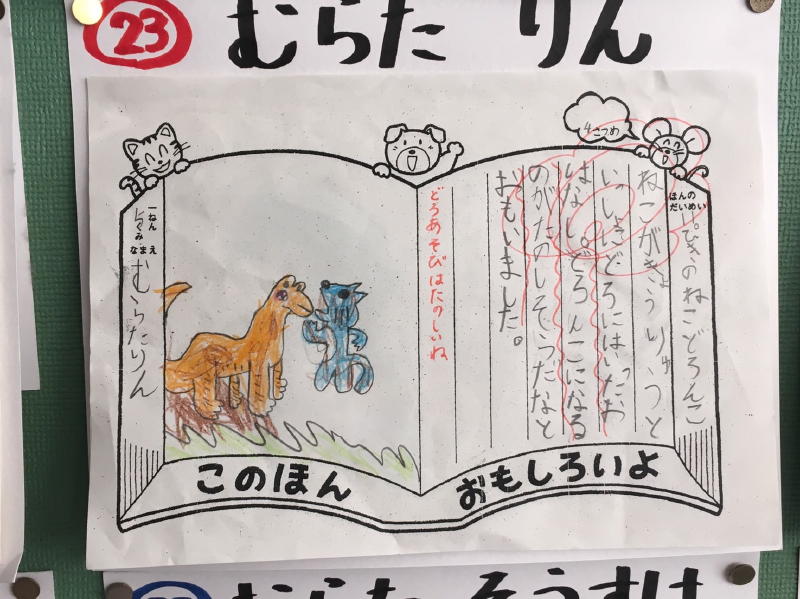 23
むらた りん
4こつめ
ほんの
だいめい
ぴきのねこどろんこ
ねこがきょうりゅうと
いっしょにどろにはいったお
はなし。どろんこになる
のがたのしそうだなと
おもいました。
どろあそびはたのしいね
一ねん
くみ
なまえ
むらたりん
このほん
おもしろいよ
むらた そうすけ